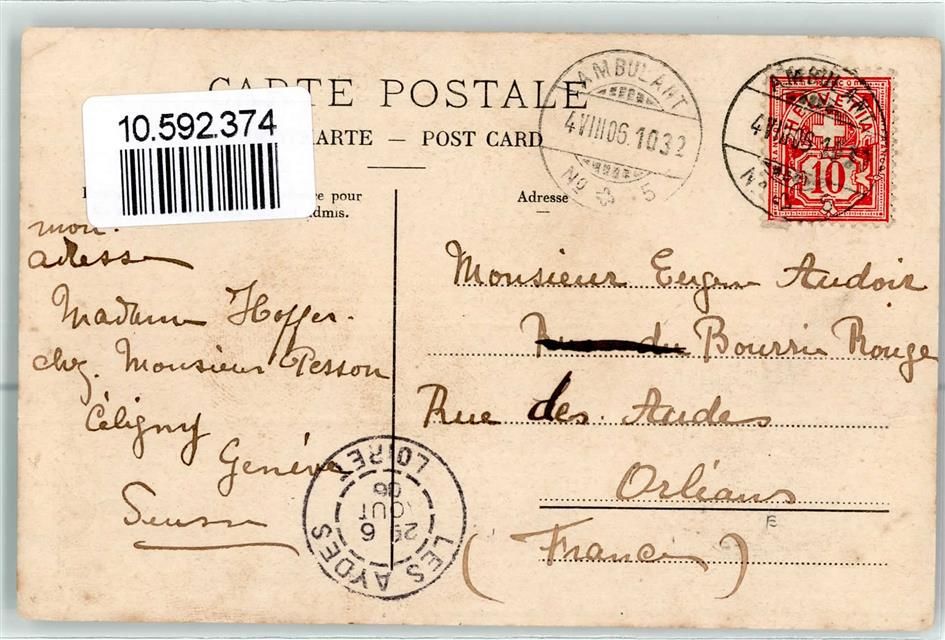 CARTE POSTALE
10.592.374
CARTE — POST CARD
ce pour
admis.
Adresse
AMBULANT
4 VIII 06. 10 32
No 5
AMBULANT
4 VIII 06
No 5
HELVETIA
10
mon.
adresse
Madame Hoffer.
chez. Monsieur Pesson
Céligny
Genève
Suisse
Monsieur Eugene Audoir
Rue du Bourrie Rouge
Rue des Audes
Orléans
(France)
E
LES AYDES
6
25
AOUT
06
LOIRET